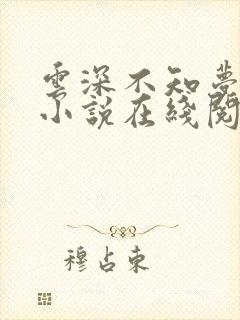 雲深不知夢
小說在綫閱
穆占東